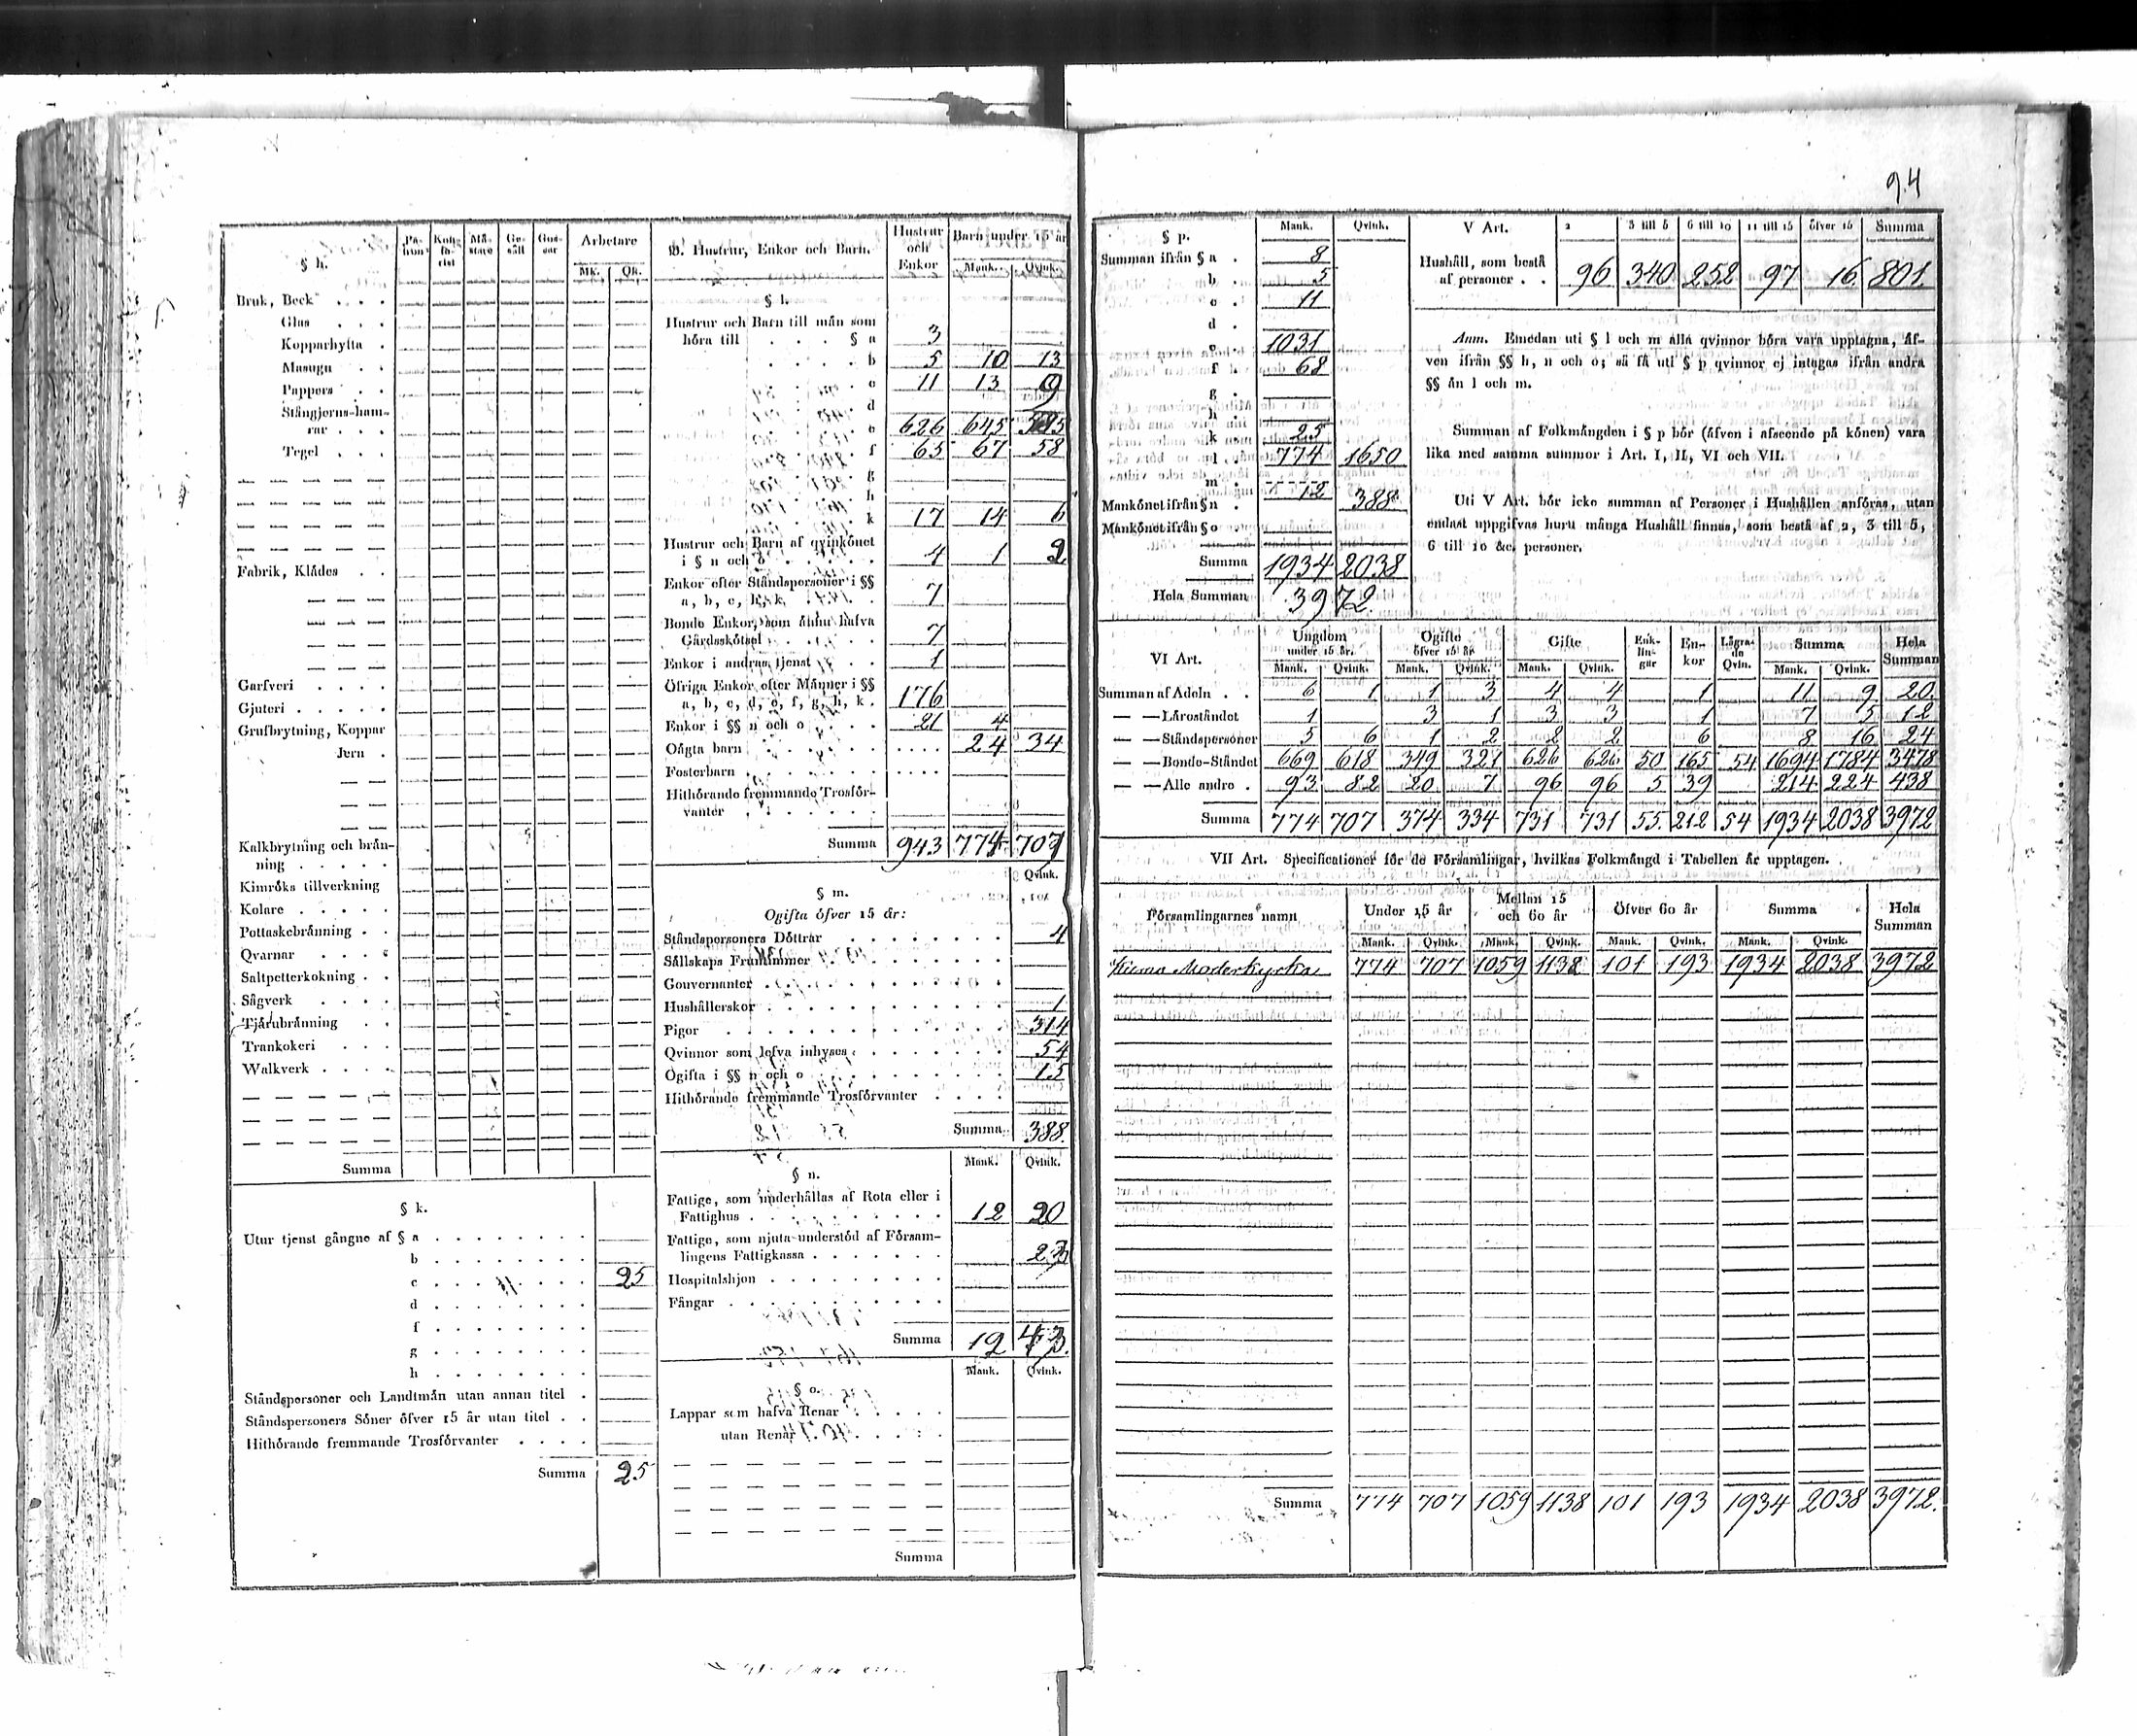 94
§ h.
Pa-
tron
Kon-
to-
rist
Mä-
stare
Ge-
säll
Gos-
sar
Arbetare
Mk. Qk.
Bruk, Beck . . .
Glas . . .
Kopparhytta .
Masugn . .
Pappers . .
Stångjerns-ham-
rar . . .
Tegel . . .
Fabrik, Klädes . .
Garfveri . . . .
Gjuteri . . . . .
Grufbrytning, Koppar
Jern .
Kalkbrytning och brän-
ning . . . . .
Kimröks tillverkning
Kolare . . . . .
Pottaskebränning . .
Qvarnar . . . .
Saltpetterkokning . .
Sågverk . . . .
Tjärubränning . .
Trankokeri . . .
Walkverk . . . .
Summa
§ k.
Utur tjenst gångne af § a . . . . . . . .
b . . . . . . . .
c . . . . . . . . 25
d . . . . . . . .
f . . . . . . . .
g . . . . . . . .
h . . . . . . . .
Ståndspersoner och Landtmän utan annan titel .
Ståndspersoners Söner öfver 15 år utan titel . .
Hithörande fremmande Trosförvanter . . . .
Summa 25
B. Hustrur, Enkor och Barn.
Hustrur
och
Enkor
Barn under 15 år
Mank. Qvink.
§ l.
Hustrur och Barn till män som
höra till . . . § a 3
b 5 10 13
c 11 13 9
d
e 626 645 585
f 65 67 58
g
h
k 17 14 6
Hustrur och Barn af qvinkönet
i § n och o . . . . . . 4 1 2
Enkor efter Ståndspersoner i §§
a, b, c, h, k, . . . . 7
Bonde Enkor, som ännu hafva
Gårdsskötsel . . . . . . 7
Enkor i andras tjenst . . . 1
Öfriga Enkor efter Männer i §§
a, b, c, d, e, f, g, h, k . 176
Enkor i §§ n och o . . . . 21 4
Oägta barn . . . . . . . . . . . 24 34
Fosterbarn . . . . . . . . . . .
Hithörande fremmande Trosför-
vanter . . . . . . .
Summa 943 774 707
Qvink.
§ m.
Ogifta öfver 15 år:
Ståndspersoners Döttrar . . . . . . . 4
Sällskaps Fruntimmer . . . . . . . .
Gouvernanter . . . . . . . . . .
Hushållerskor . . . . . . . . . . 1
Pigor . . . . . . . . . . . . 314
Qvinnor som lefva inhyses . . . . . . . 54
Ogifta i §§ n och o . . . . . . . . . 15
Hithörande fremmande Trosförvanter . . . .
Summa 388.
Mank. Qvink.
§ n.
Fattige, som underhållas af Rota eller i
Fattighus . . . . . . . . . . 12 20
Fattige, som njuta understöd af Försam-
lingens Fattigkassa . . . . . . . 23
Hospitalshjon . . . . . . . . .
Fångar . . . . . . . . . . .
Summa 12 43.
Mank. Qvink.
§ o.
Lappar som hafva Renar . . . . .
utan Renar . . . . . .
Summa
§ p.
Mank. Qvink.
Summan ifrån § a . 8
b . 5
c . 11
d .
e . 1031
f . 68
g .
h .
k . 25
l . 774 1650
m .
Mankönet ifrån § n . 12 388
Mankönet ifrån § o .
Summa 1934 2038
Hela Summan 3972.
V Art. 2 3 till 5 6 till 10 11 till 15 öfver 15 Summa
Hushåll, som bestå
af personer . . 96 340 252 97 16. 801.
Anm. Emedan uti § l och m alla qvinnor böra vara upptagna, äf-
ven ifrån §§ h, n och o; så få uti § p qvinnor ej intagas ifrån andra
§§ än l och m.
Summan af Folkmängden i § p bör (äfven i afseende på könen) vara
lika med samma summor i Art. I, II, VI och VII.
Uti V Art. bör icke summan af Personer i Hushållen anföras, utan
endast uppgifvas huru många Hushåll finnas, som bestå af 2, 3 till 5,
6 till 10 &c. personer.
VI Art.
Ungdom
under 15 år.
Ogifte
öfver 15 år
Gifte
Enk-
lin-
gar
En-
kor
Lägra-
de
Qvin.
Summa
Hela
Summan
Mank. Qvink. Mank. Qvink. Mank. Qvink. Mank. Qvink.
Summan af Adeln . . 6 1 1 3 4 4 1 11 9 20.
— — Läroståndet 1 3 1 3 3 1 7 5 12
— — Ståndspersoner 5 6 1 2 2 2 6 8 16 24
— — Bonde-Ståndet 669 618 349 321 626 626 50 165 54 1694 1784 3478
— — Alle andre . 93 82 20 7 96 96 5 39 214 224 438
Summa 774 707 374 334 731 731 55. 212 54 1934 2038 3972
VII Art. Specificationer för de Församlingar, hvilkas Folkmängd i Tabellen är upptagen.
Församlingarnes namn
Under 15 år
Mellan 15
och 60 år
Öfver 60 år
Summa
Hela
Summan
Mank. Qvink. Mank. Qvink. Mank. Qvink. Mank. Qvink.
Moderkyrka 774 707 1059 1138 101 193 1934 2038 3972
Summa 774 707 1059 1138 101 193 1934 2038 3972.